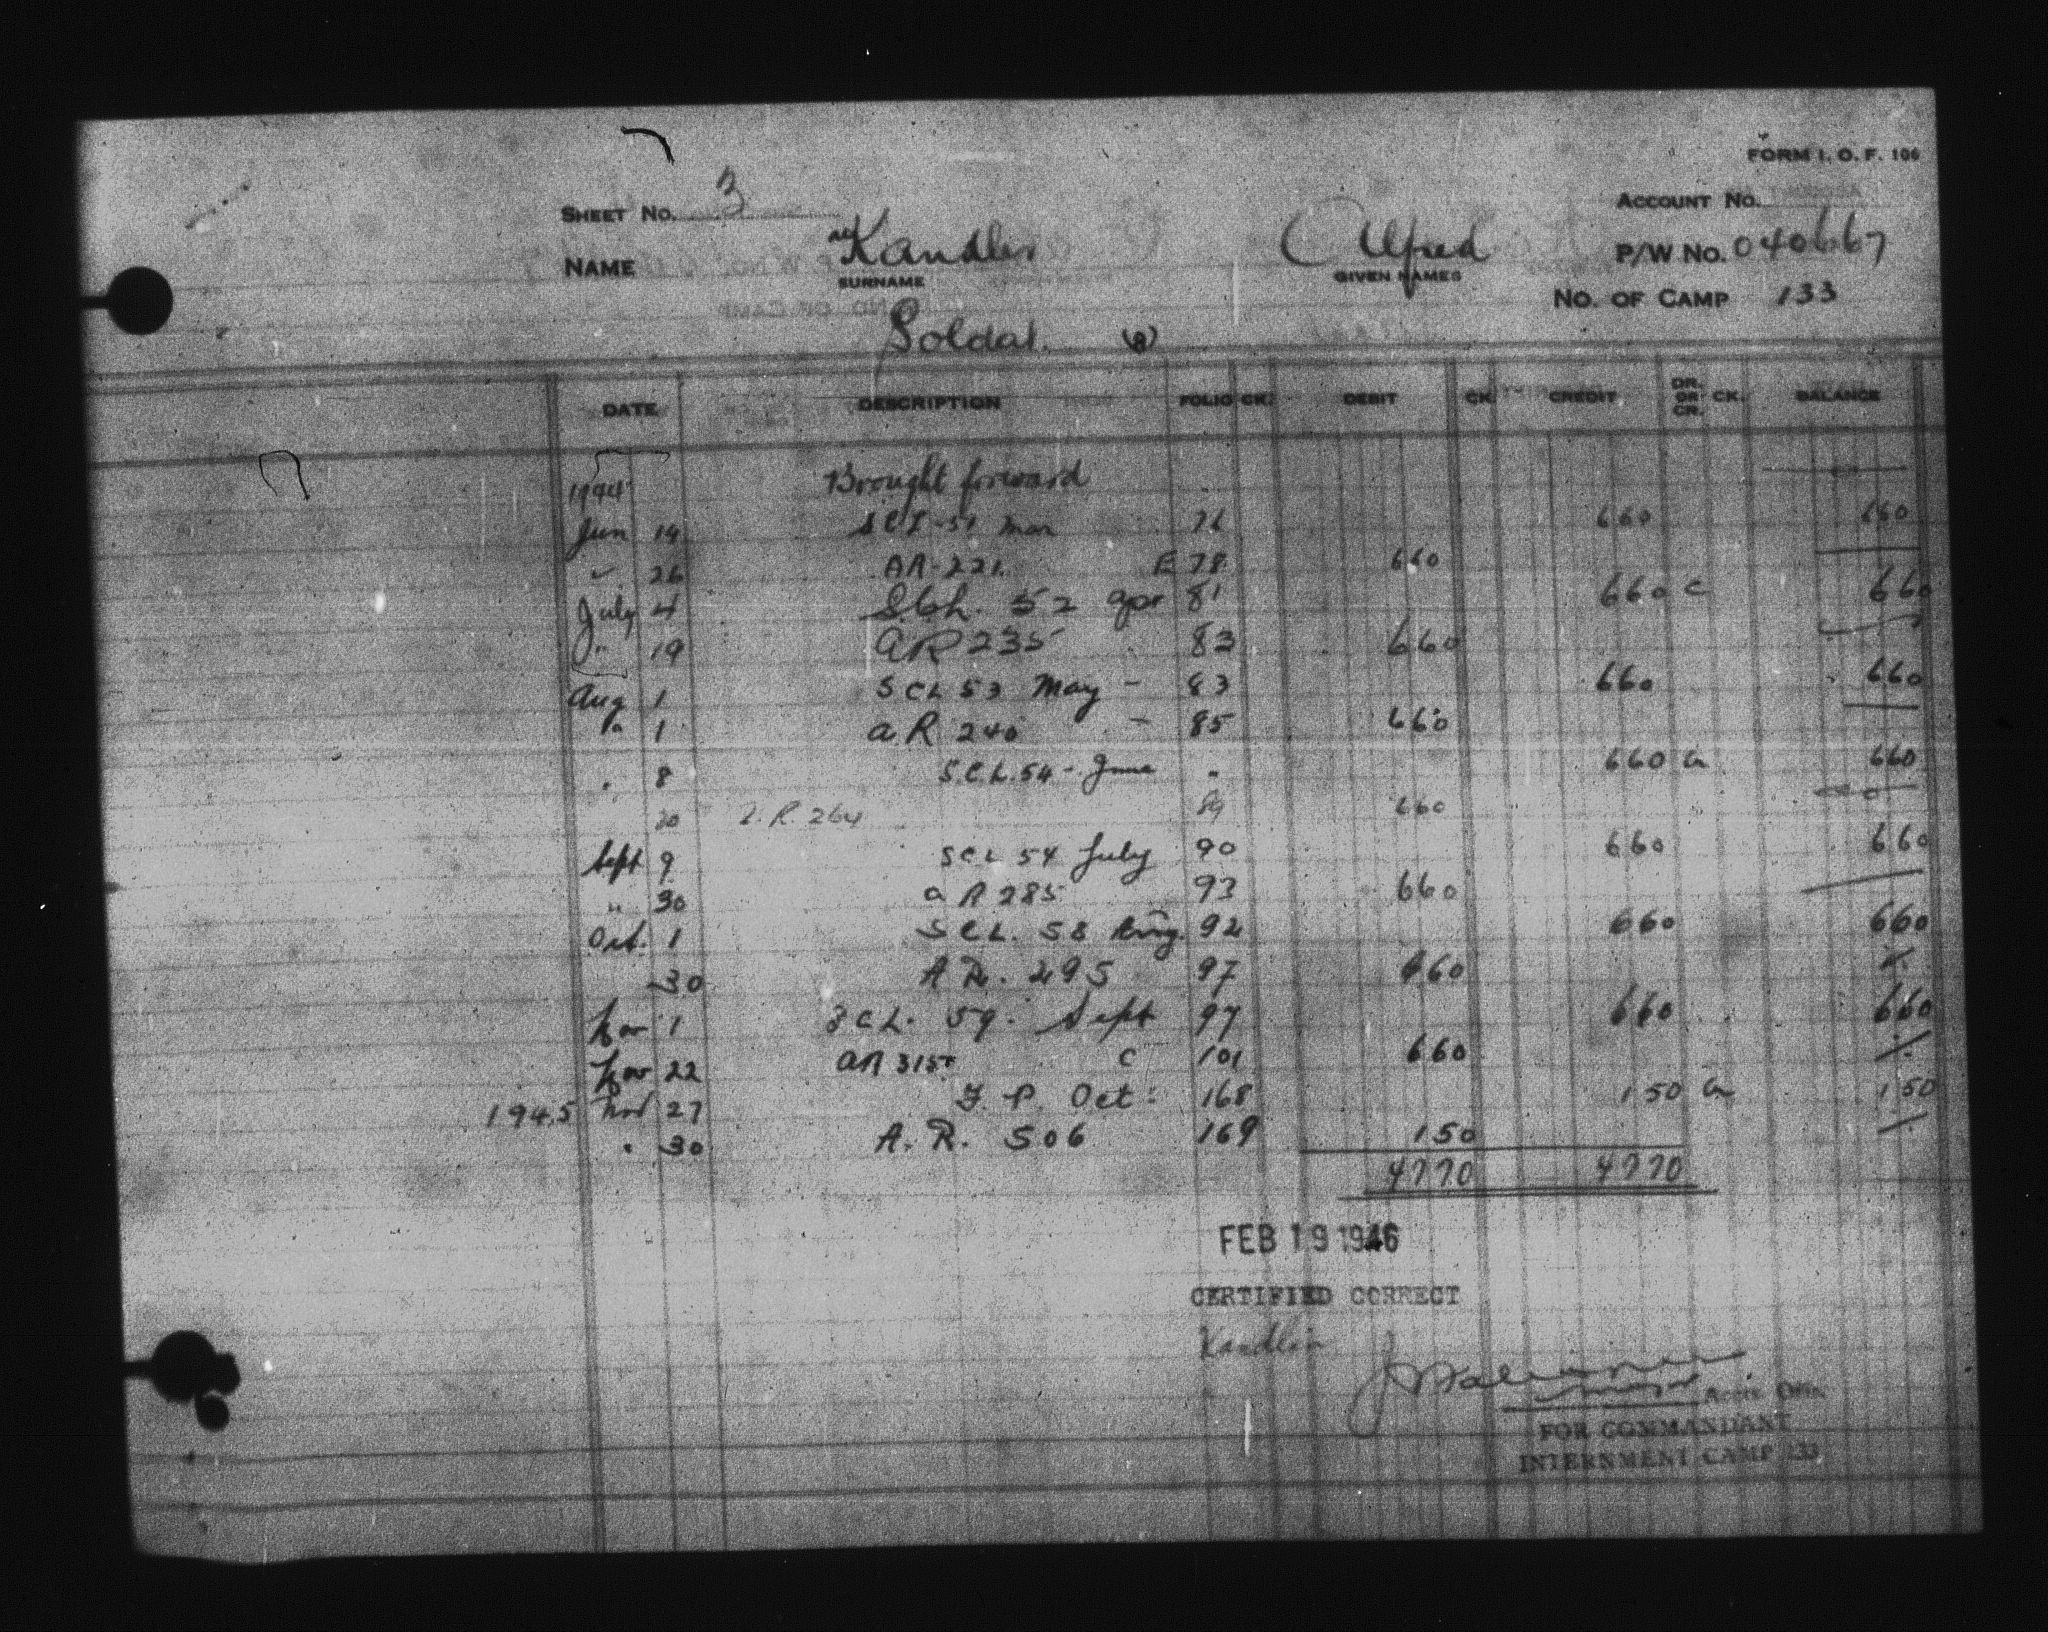 FORM I. O. F. 106
SHEET No. 3
ACCOUNT No.
NAME Kandler Alfred P/W No. 040667
SURNAME GIVEN NAMES
No. OF CAMP 133
Soldat (8)
DATE DESCRIPTION FOLIO CK. DEBIT CK. CREDIT DR. OR CR. CK. BALANCE
1944 Brought forward
Jun 14 SCL 51 mar 76 660 660
26 AR 221 E 78 660
July 4 S.C.L. 52 apr 81 660 C 660
" 19 AR 235 83 660
Aug 1 SCL 53 May - 83 660 660
1 a.R 240 - 85 660
" 8 S.C.L. 54 - June " 660 Cr 660
20 A.R. 264 89 660
Sept 9 SCL 54 July 90 660 660
" 30 a R 285 93 660
Oct. 1 SCL. 58 Aug. 92 660 660
30 A R. 295 97 660
Nov 1 SCL. 59. Sept 97 660 660
Nov 22 AR 315 C 101 660
1945 Nov 27 F. P. Oct 168 150 Cr 150
" 30 A. R. 506 169 150
4770 4770
FEB 19 1946
CERTIFIED CORRECT
Kandler
Accts. Offr.
FOR COMMANDANT
INTERNMENT CAMP 133